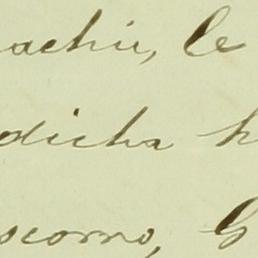 achir, le
dicha h
scorno, G